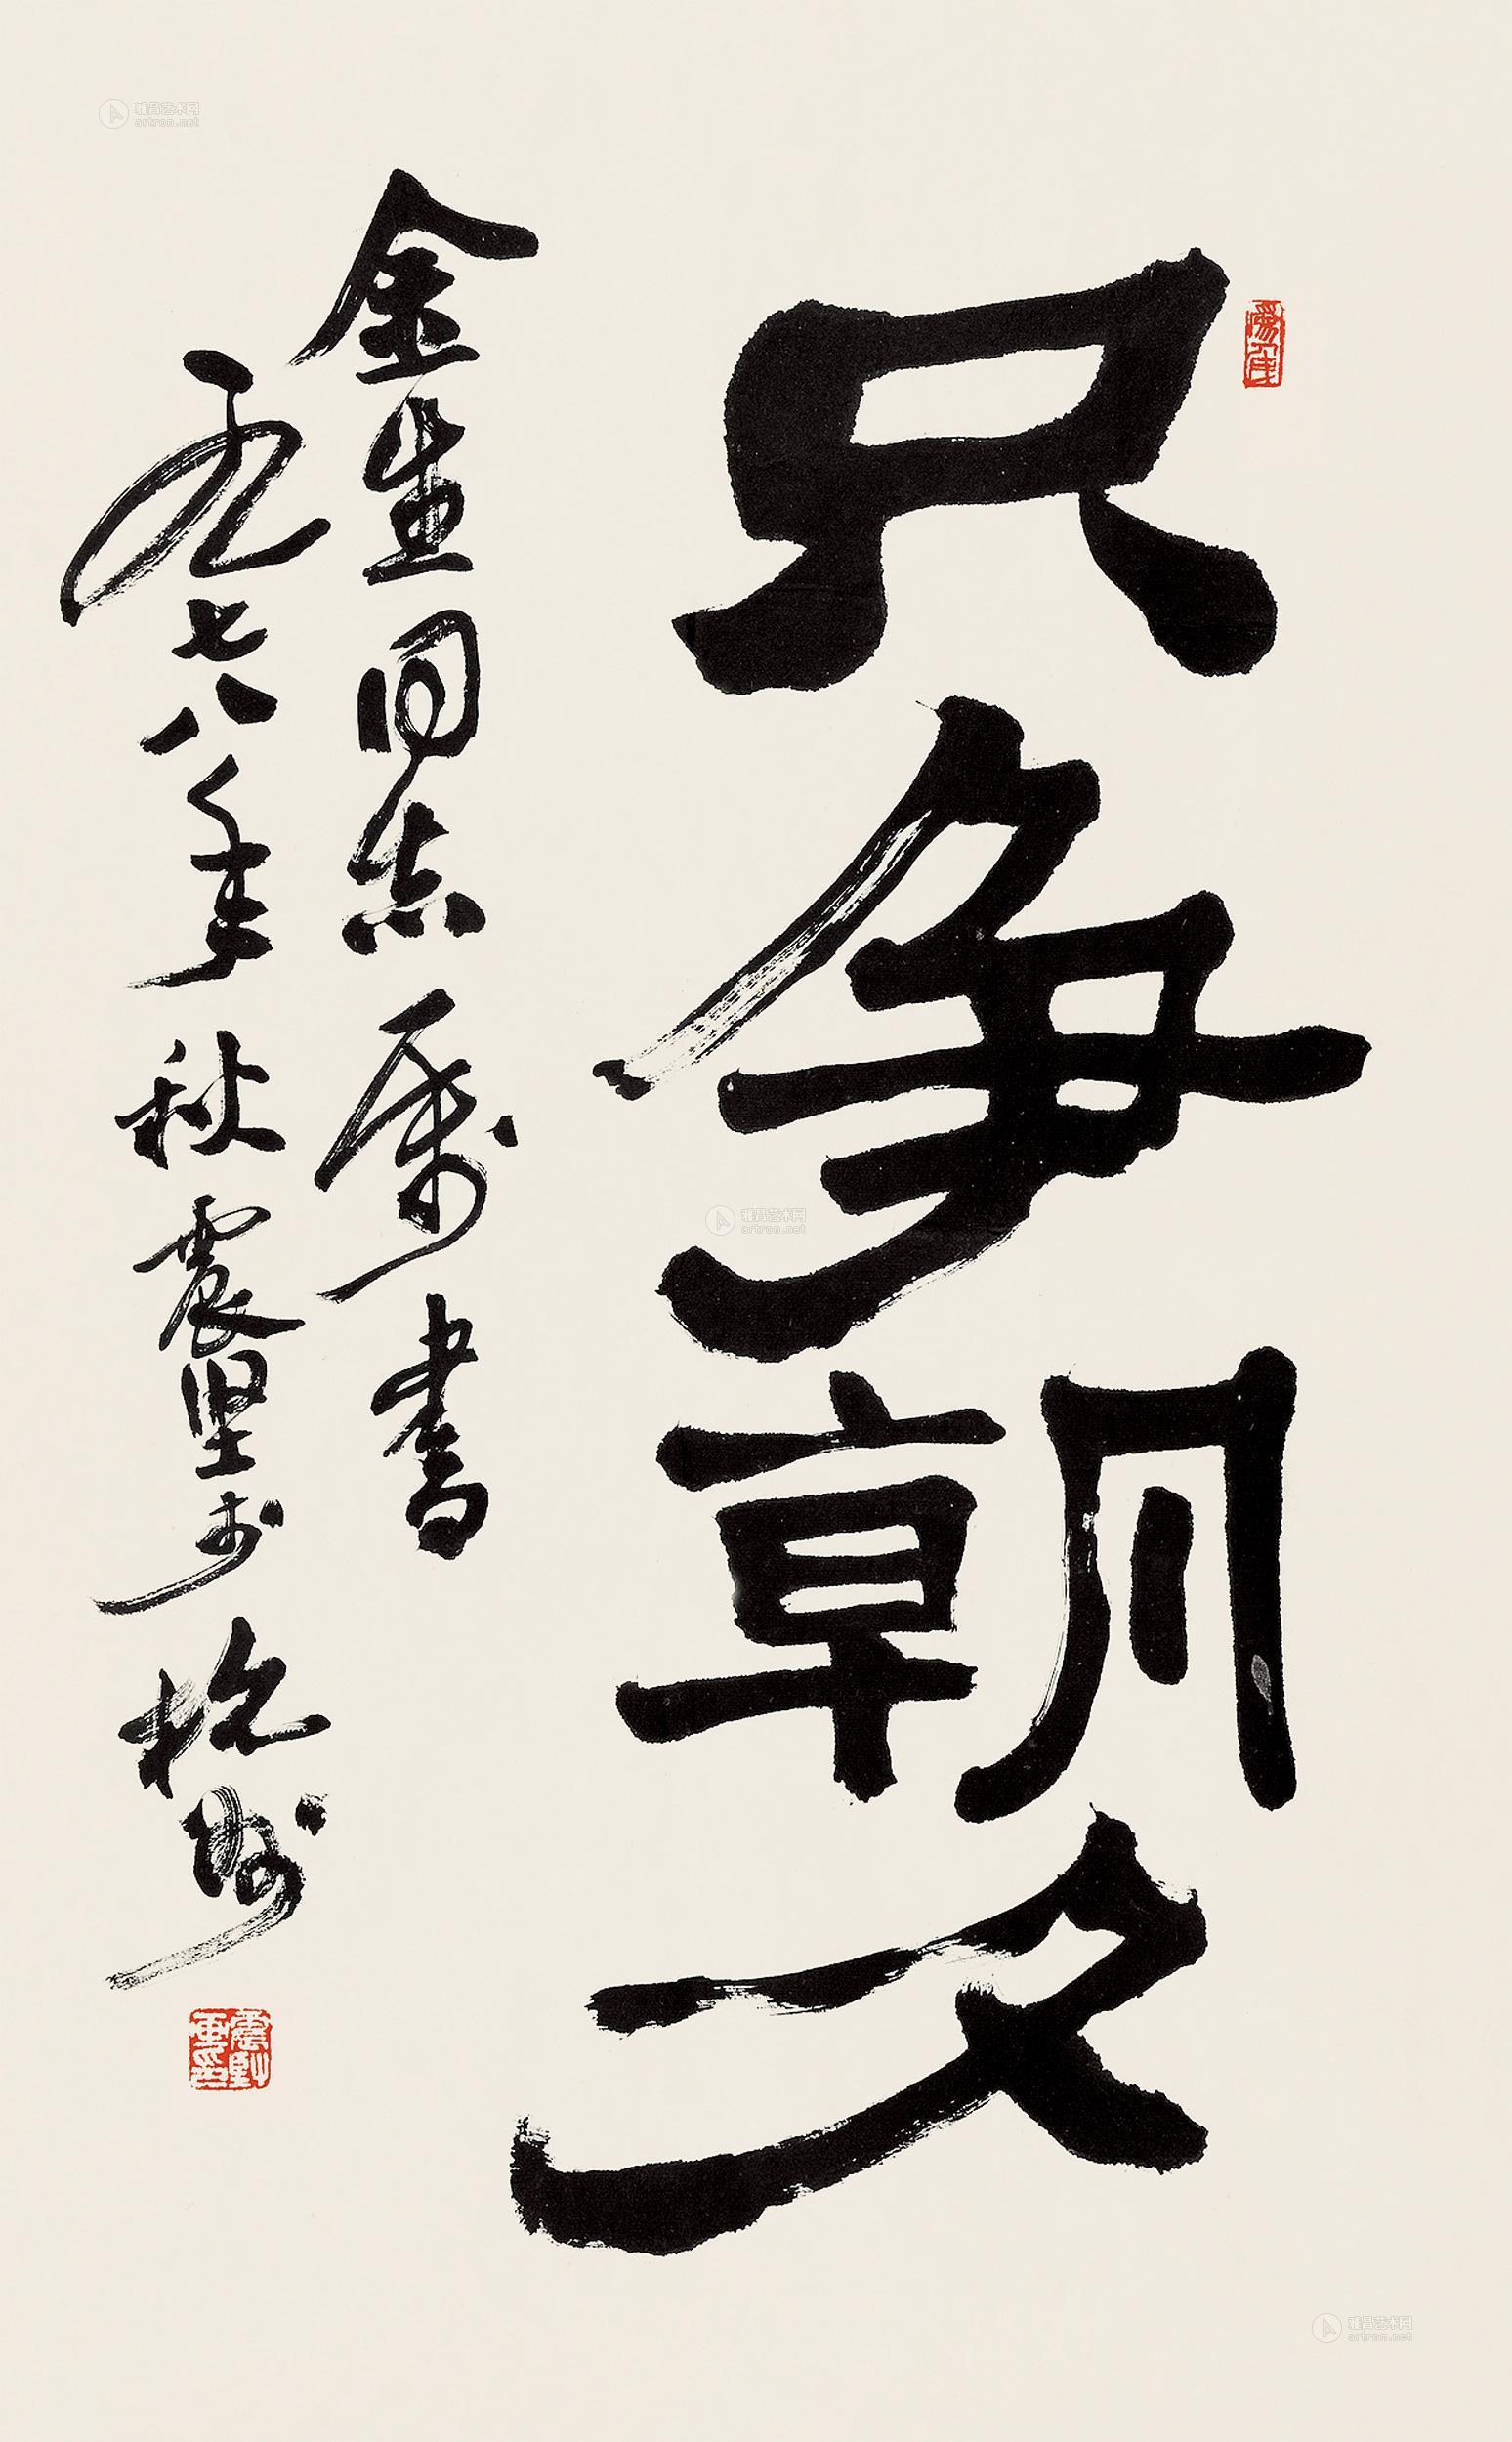 只争朝夕
金生同志属书
一九七八年秋震坚于杭州
雅昌艺术网
artron.net
雅昌艺术网
artron.net
雅昌艺术网
artron.net